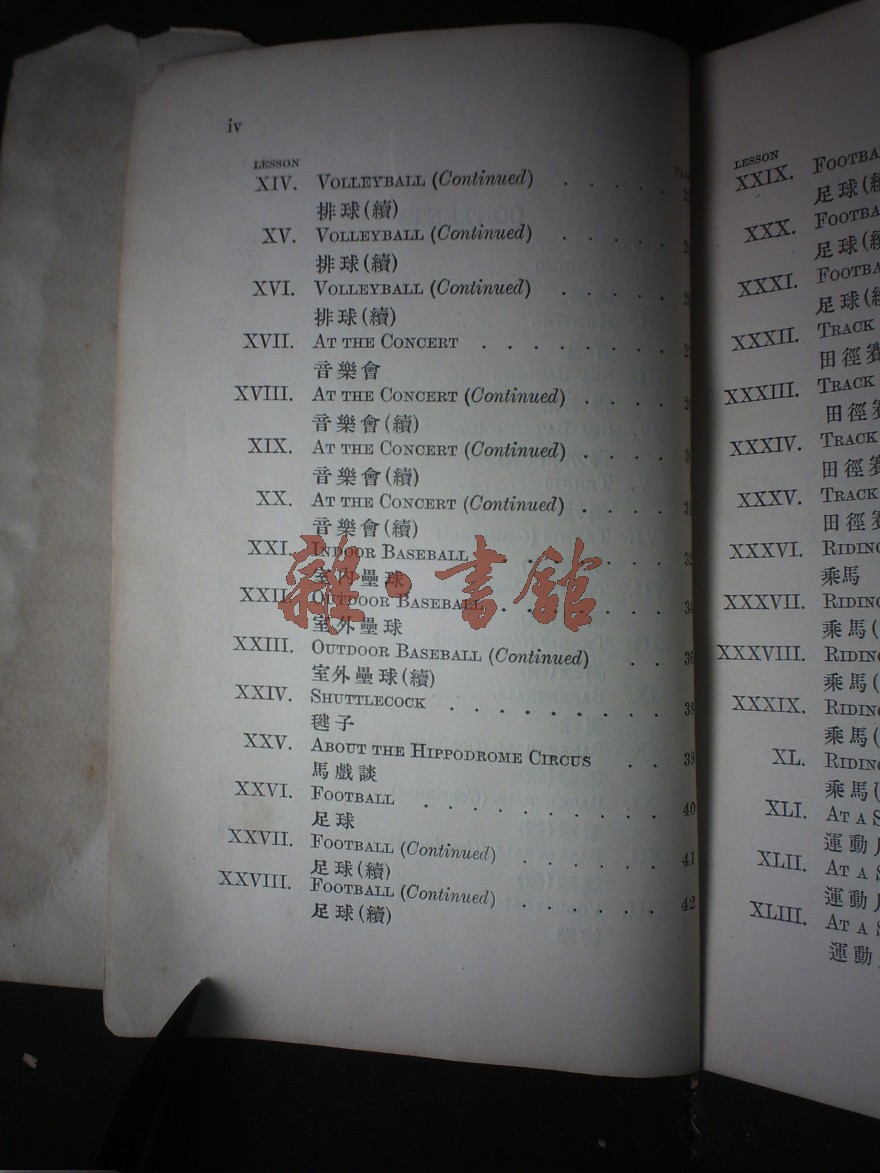 iv
LESSON
XIV. VOLLEYBALL (Continued) . . . . .
排球(續)
XV. VOLLEYBALL (Continued) . . . . .
排球(續)
XVI. VOLLEYBALL (Continued) . . . . .
排球(續)
XVII. AT THE CONCERT . . . . . . . .
音樂會
XVIII. AT THE CONCERT (Continued) . . . .
音樂會(續)
XIX. AT THE CONCERT (Continued) . . . .
音樂會(續)
XX. AT THE CONCERT (Continued) . . . .
音樂會(續)
XXI. INDOOR BASEBALL . . . . . . 33
室內壘球
XXII. OUTDOOR BASEBALL . . . . . . 34
室外壘球
XXIII. OUTDOOR BASEBALL (Continued) . . 36
室外壘球(續)
XXIV. SHUTTLECOCK . . . . . . . . 38
毽子
XXV. ABOUT THE HIPPODROME CIRCUS . . 39
馬戲談
XXVI. FOOTBALL . . . . . . . . . 40
足球
XXVII. FOOTBALL (Continued) . . . . . . 41
足球(續)
XXVIII. FOOTBALL (Continued) . . . . . . 42
足球(續)
雜·書館
LESSON
XXIX. FOOTBA
足球(續
XXX. FOOTBA
足球(續
XXXI. FOOTBA
足球(續
XXXII. TRACK
田徑賽
XXXIII. TRACK
田徑賽
XXXIV. TRACK
田徑賽
XXXV. TRACK
田徑賽
XXXVI. RIDING
乘馬
XXXVII. RIDING
乘馬(
XXXVIII. RIDING
乘馬(
XXXIX. RIDING
乘馬(
XL. RIDING
乘馬(
XLI. AT A S
運動
XLII. AT A S
運動
XLIII. AT A S
運動